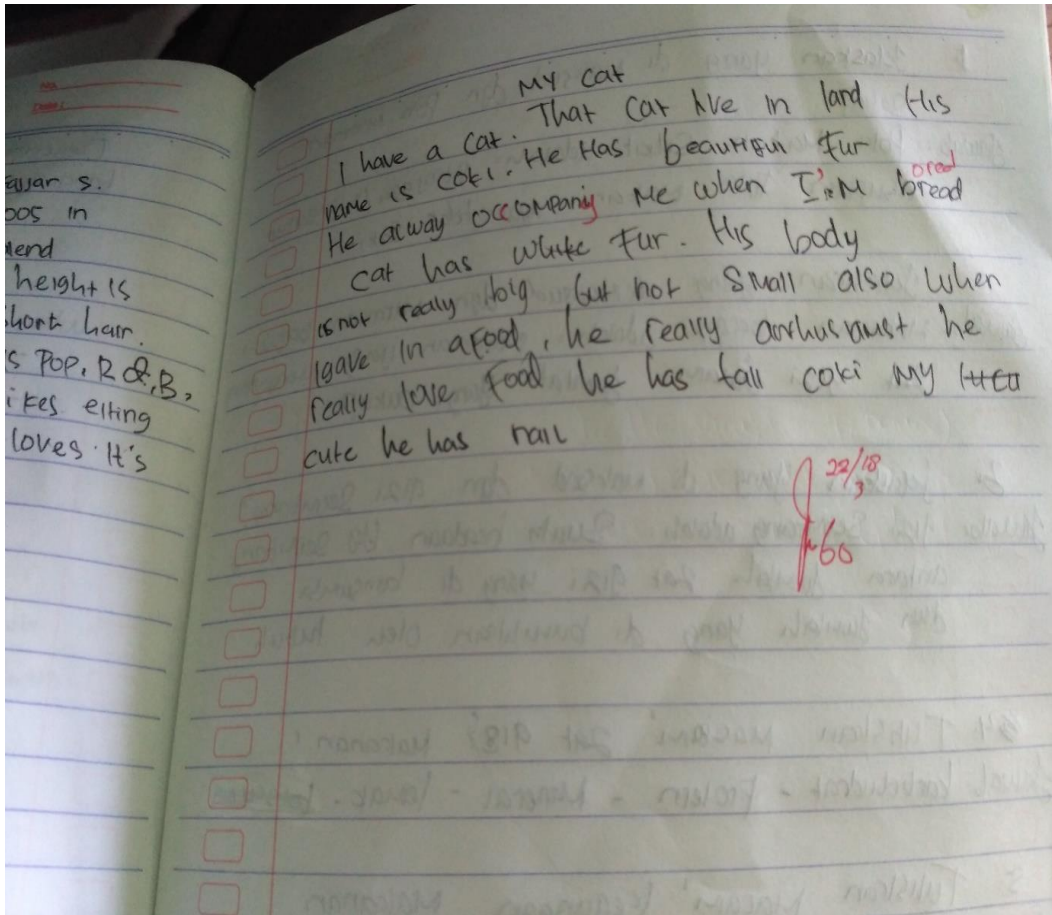 No
Date:
allar s.
oos in
lend
height is
short hair.
s POP, R &, B,
ikes elting
loves. It's
MY Cat
I have a Cat. That Cat live in land His
name is coki. He Has beautifun Fur
ored
He alway OccOMPaniy Me when I'M bread
Cat has white Fur. His body
is not really big but not Small also when
I gave In a Food, he really anthusiamst he
really love Food he has tall coki My
cute he has nail
22/18
3
60